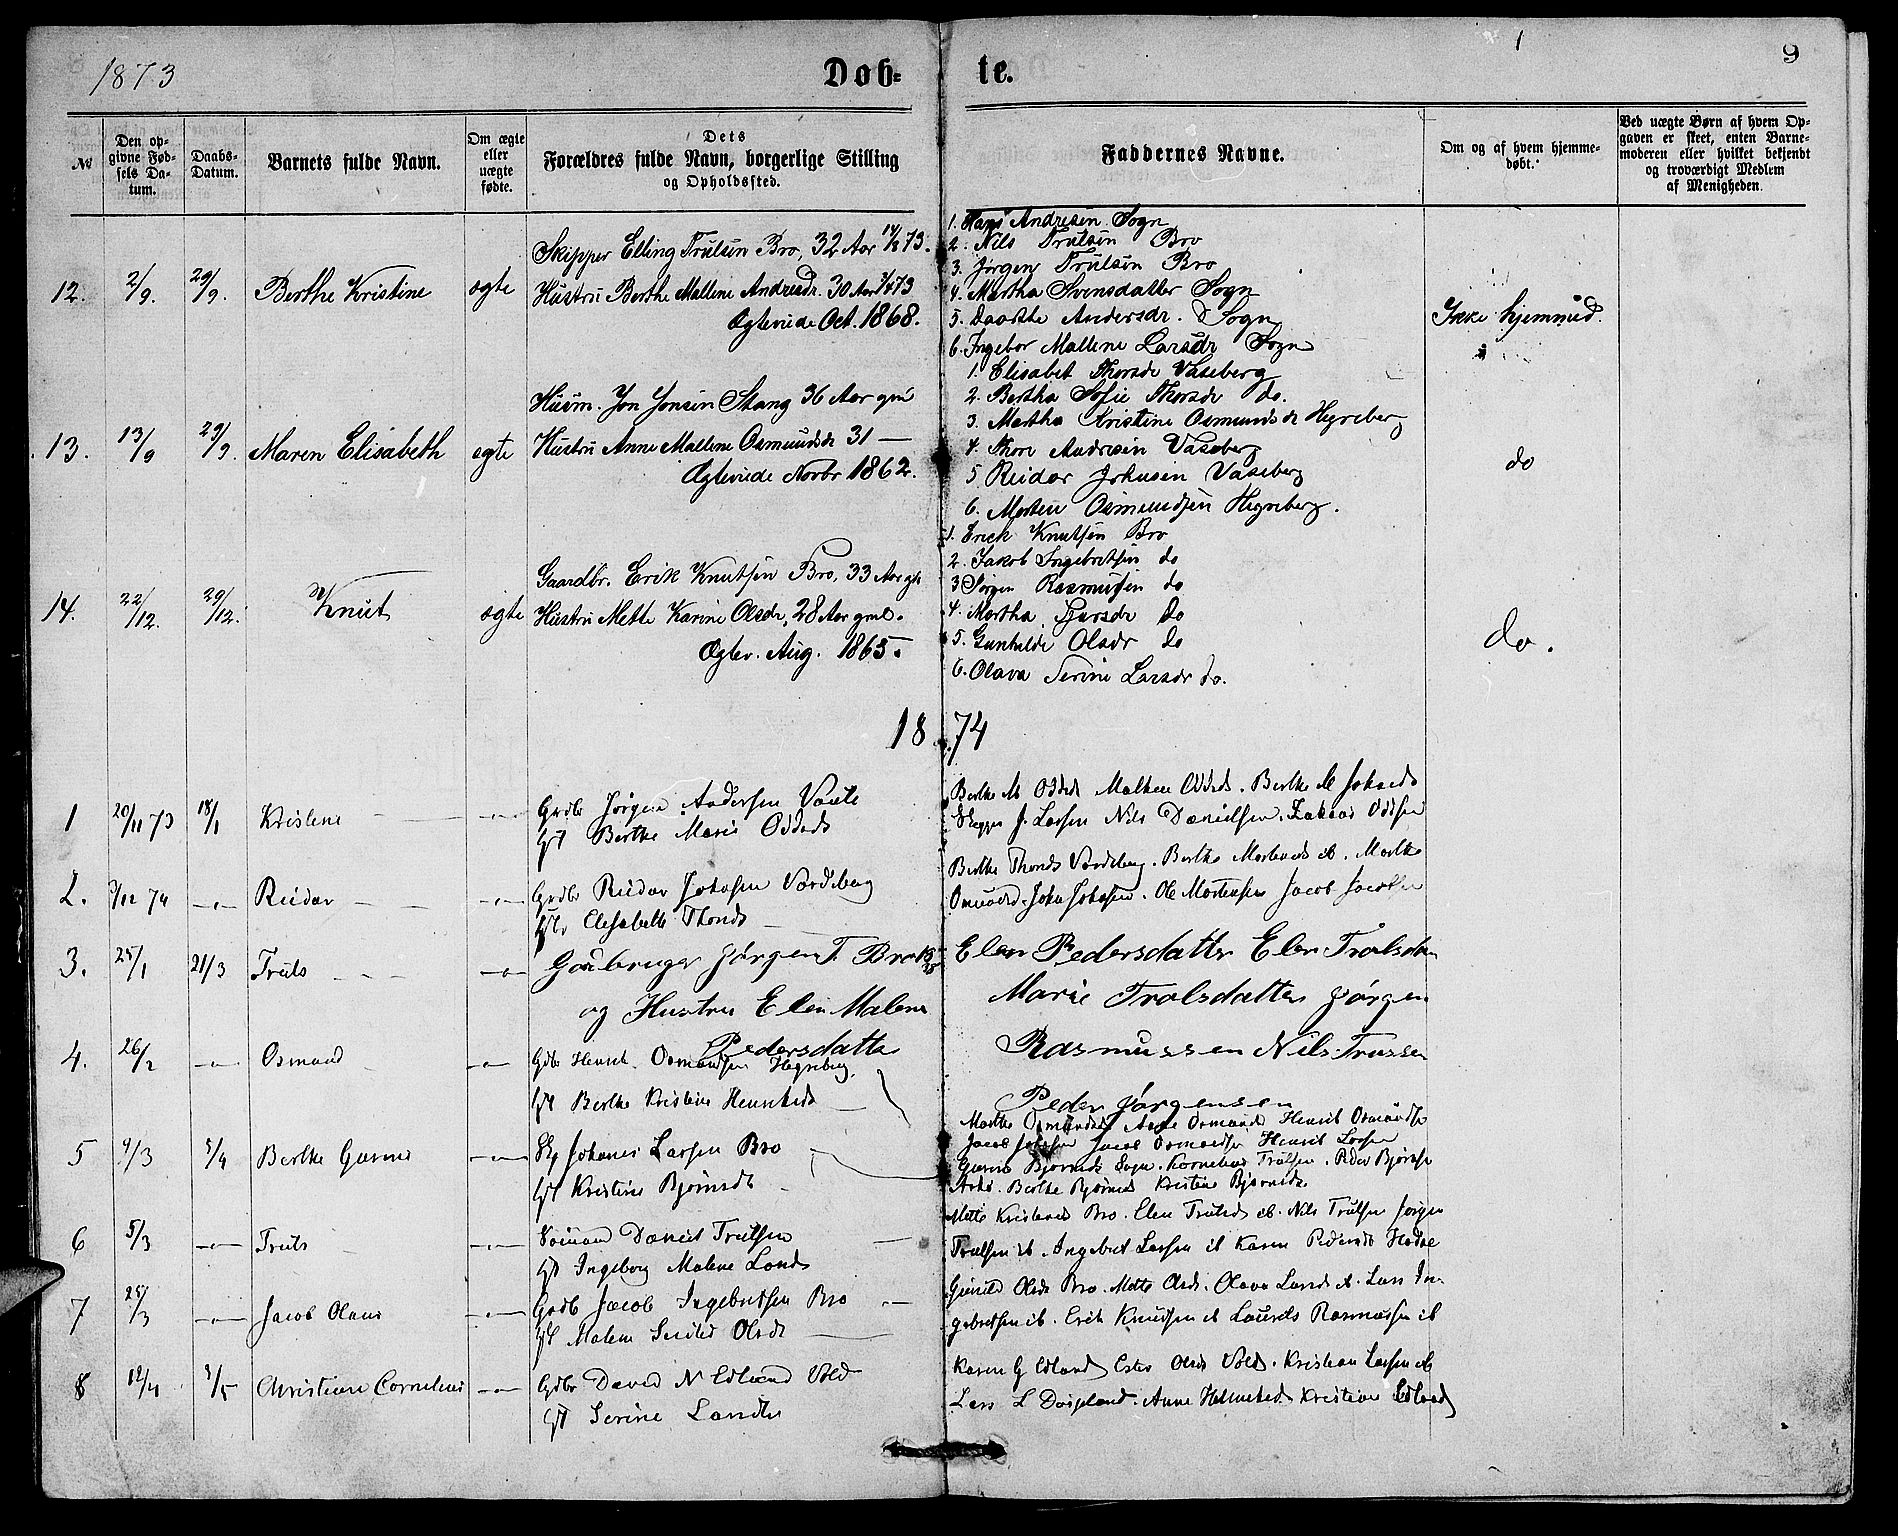 1873
Døb=
te.
9
№
Den op-
givne Fød-
sels Da-
tum.
Daabs-
Datum.
Barnets fulde Navn.
Om ægte
eller
uægte
fødte.
Dets
Forældres fulde Navn, borgerlige Stilling
og Opholdssted.
Faddernes Navne.
Om og af hvem hjemme-
døbt.
Ved uægte Børn af hvem Op-
gaven er skeet, enten Barne-
moderen eller hvilket bekjendt
og troværdigt Medlem
af Menigheden.
12. 2/9. 29/9. Berthe Kristine ægte
Skipper Elling Trulsen Bro, 32 Aar 73.
Hustru Berthe Mallene Andresdr. 30 Aar 73
Ægteviede Oct. 1868.
1. Hans Andresen Sogn
2. Nils Trulsen Bro
3. Jørgen Trulsen Bro
4. Martha Svensdatter Sogn
5. Daarthe Andersdr. Sogn
6. Ingebor Mallene Larsdr Sogn
Ikke hjemmed.
13. 13/9 29/9. Maren Elisabeth ægte
Huusm. Jon Jonsen Stang 36 Aar gml
Hustru Anne Mallene Osmundsdr 31 —
Ægteviede Novbr 1862.
1. Elisabet Thorsdr Vaseberg
2. Bertha Sofie Thorsdr do.
3. Martha Kristine Osmundsdr Hegreberg
4. Thore Andresen Vaseberg
5 Reidar Johnsen Vaseberg
6. Morten Osmundsen Hegreberg.
do
14. 22/12. 29/12. Knut ægte
Gaardbr. Erik Knutsen Bro, 33 Aar gl.
Hustru Mette Karine Olsdr, 28 Aar gml.
Ægtev. Aug. 1865.
1. Erick Knutsen Bro
2. Jakob Ingebretsen do
3 Jørgen Rasmussen do
4. Martha Larsdr do
5. Gunhilde Olsdr do
6. Olava Serine Larsdr do.
do.
1874
1 20/11 73 18/1 Kristene —"—
Grdbr Jørgen Andersen
Hst Berthe Marie Oddsd
Berthe M Oddsd. Malene Oddsd. Berthe M Johnsd
J. Larsen Nils Danielsen. Zakrias Oddsen
2. 74 —"— Reidar —"—
Grdbr Reidar Johnsen Vardeberg
Elisabeth Thorsd
Berthe Thorsd Vardeberg. Berthe Mortensd ib. Marthe
Osmundsd. John Johnsen. Ole Mortensen Jacob Jacobsen
3. 25/1 21/3 Truls —"—
Gaubruger Jørgen T. Bro
og Hustru Elen Malene
Pedersdatter
Elen Pedersdatter Elen Trolsdatter
Marie Trolsdatter Jørgen
Rasmussen Nils Trussen
Peder Jørgensen
4. 26/2 —"— Osmund —"—
Gdbr Henrik Osmundsen Hegreberg
Hst Berthe Kristine Henriksd
Marthe Osmundsd Anne Osmundsd Henrik Osmundsen
Jacob Johnsen Jacob Osmundsen Henrik Larsen
5 4/3 5/4 Berthe Gurine —"—
Johanes Larsen Bro
Hst Kristine Bjørnsdt
Gurine Bjørnsdt Sogn. Kornelius Trulsen. Peder Bjørnsen
Berthe Bjørnsd Kristine Bjørnsdr
6 5/3 —"— Truls —"—
Sømand Daniel Trulsen
Hst Ingeborg Malene Larsdr
Mette Kristensd Bro. Elen Trulsd ib. Nils Trulsen Jørgen
Trulsen ib. Ingebret Larsen ib Karen Pedersdt
7 25/3 —"— Jacob Olaus —"—
Grdb Jacob Ingebretsen Bro
Hst Malene Olsdr
Gunild Olsdr Bro. Mette Olsdr. Olava Larsd ib. Lars In-
gebretsen ib. Erik Knudsen ib Laurids Rasmussen ib
8 12/4 3/5 Christian Cornelius —"—
Gdbr David N Edland Vold
Hst Serine Larsdtr
Karen G Edland Olsdr Vold. Kristian Larsen ib
Lars L. Anne Kristine Edland